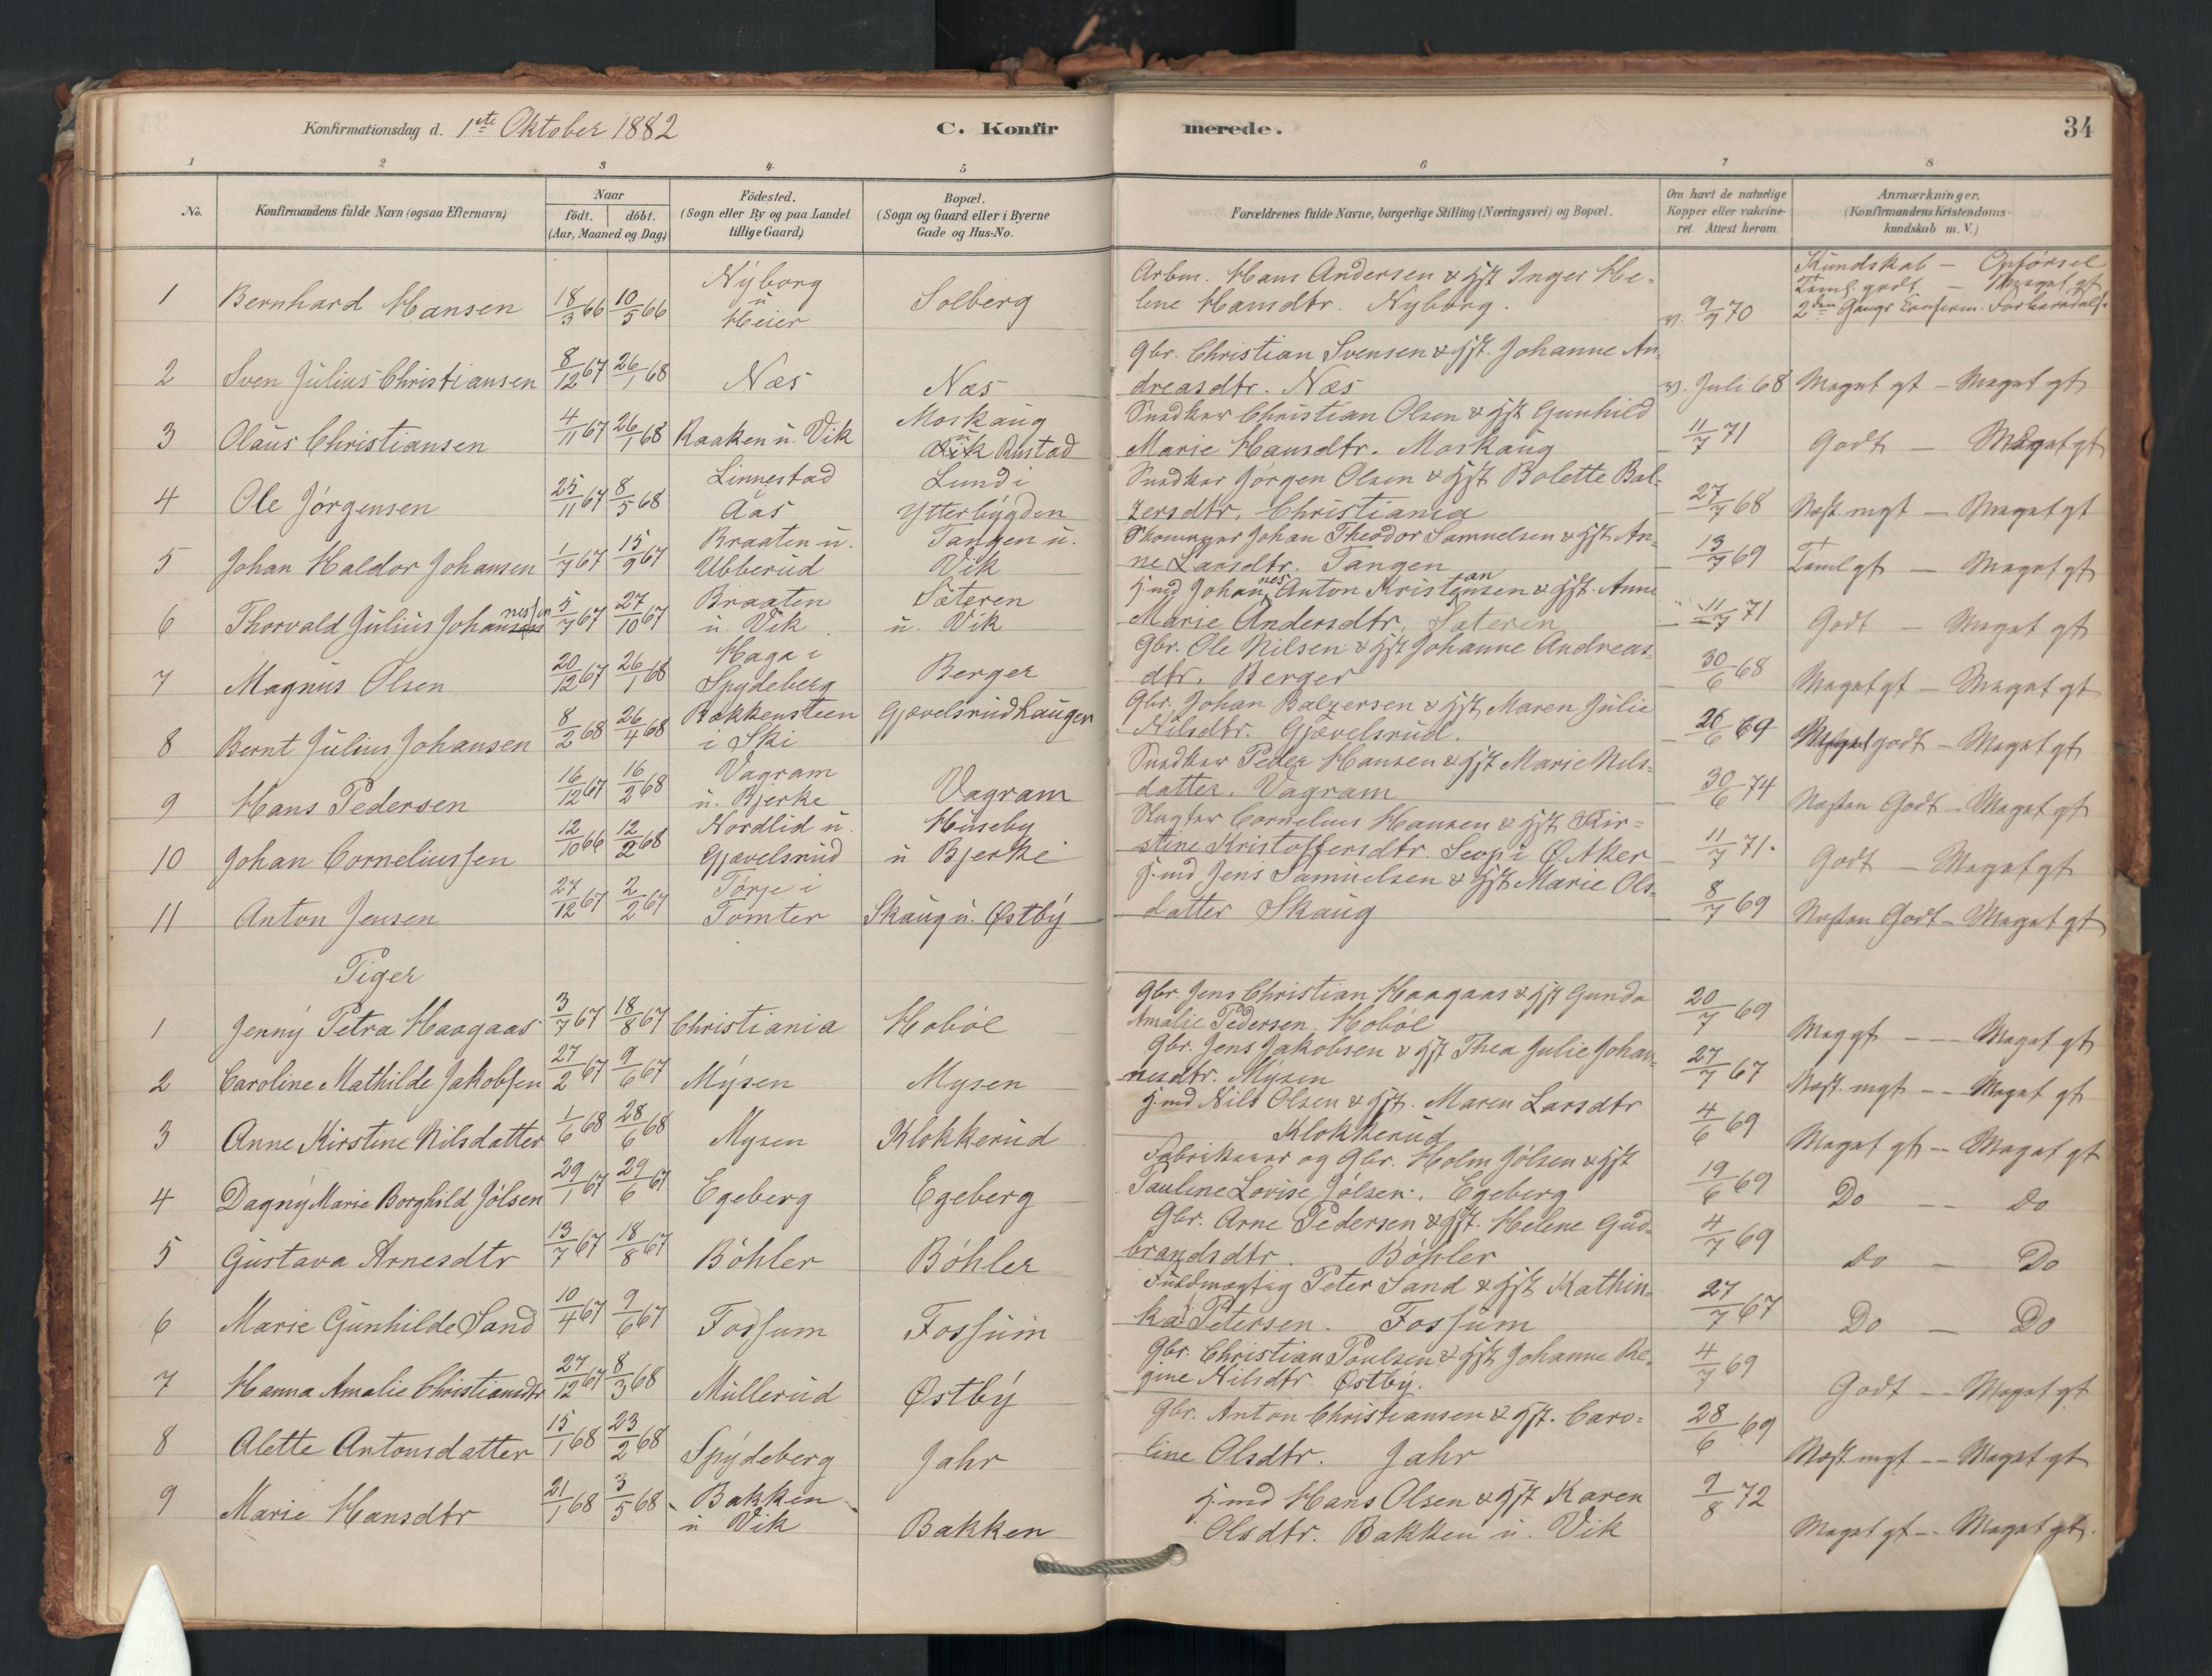 Konfirmationsdag d. 1ste Oktober 1882
C. Konfirmerede. 34
1 2 3 4 5 6 7 8
No. | Konfirmandens fulde Navn (ogsaa Efternavn) | Naar födt. döbt. (Aar, Maaned og Dag) | Födested. (Sogn eller By og paa Landet tillige Gaard) | Bopæl. (Sogn og Gaard eller i Byerne Gade og Hus-No. | Forældrenes fulde Navne, borgerlige Stilling (Næringsvei) og Bopæl. | Om havt de naturlige Kopper eller vakcineret. Attest herom. | Anmærkninger. (Konfirmandens Kristendomskundskab m. V.)
Kundskab — Opførsel
1 | Bernhard Hansen | 18/3 66 | 10/5 66 | Nyborg u Heier | Solberg | Arbm. Hans Andersen & Hst Inger Helene Hansdtr. Nyborg. | v. 9/9 70 | Taml. godt — Meget gt 2den Gangs
2 | Sven Julius Christiansen | 8/12 67 | 26/1 68 | Næs | Næs | Gbr. Christian Svensen & Hst. Johanne Andreasdtr. Næs | v. Juli 68 | Meget gt — Meget gt
3 | Olaus Christiansen | 4/11 67 | 26/1 68 | Raaken u. Vik | Moskaug u Rustad | Snedker Christian Olsen & Hst Gunhild Marie Hansdtr. Moskaug | 11/7 71 | Godt — Meget gt
4 | Ole Jörgensen | 25/11 67 | 8/5 68 | Linnestad Aas | Lund i Ytterbygden | Snedker Jörgen Olsen & Hst Bolette Balzersdtr. Christiania | 27/7 68 | Næst mgt — Meget gt
5 | Johan Haldor Johansen | 1/7 67 | 15/9 67 | Braaten u. Ubberud | Tangen u. Vik | Skomager Johan Theodor Samuelsen & Hst Anne Larsdtr. Tangen | 13/7 69 | Taml gt — Meget gt
6 | Thorvald Julius Johannessen | 5/7 67 | 27/10 67 | Braaten u. Vik | Sæteren u. Vik | Hmd Johannes Anton Kristiansen & Hst. Anne Marie Andersdtr. Sæteren | 11/7 71 | Godt — Meget gt
7 | Magnus Olsen | 20/12 67 | 26/1 68 | Haga i Spydeberg | Berger | Gbr. Ole Nilsen & Hst Johanne Andreasdtr. Berger | 30/6 68 | Meget gt — Meget gt
8 | Bernt Julius Johansen | 8/2 68 | 26/4 68 | Bækkensteen i Ski | Gjævelsrudhaugen | Gbr. Johan Balzersen & Hst Maren Julie Nilsdtr. Gjævelsrud. | 26/6 69 | godt — Meget gt
9 | Hans Pedersen | 16/12 67 | 16/2 68 | Vagram u. Bjerke | Vagram | Snedker Peder Hansen & Hst Marie Nilsdatter. Vagram | 30/6 74 | Næsten Godt — Meget gt
10 | Johan Corneliussen | 12/10 66 | 12/2 68 | Nordlid u. Gjævelsrud | Huseby u Bjerke | Slagter Cornelius Hansen & Hst Kirstine Kristoffersdtr. i Ø. Aker | 11/7 71. | Godt — Meget gt
11 | Anton Jensen | 27/12 67 | 2/2 67 | Tørje i Tomter | Skaug u. Østby | Hmd Jens Samuelsen & Hst Marie Olsdatter Skaug | 8/7 69 | Næsten Godt — Meget gt
Piger
1 | Jenny Petra Haagaas | 3/7 67 | 18/8 67 | Christiania | Hoböl | Gbr. Jens Christian Haagaas & Hst Gunda Amalie Pedersen. Hoböl | 20/7 69 | Meg gt — Meget gt
2 | Caroline Mathilde Jakobsen | 27/2 67 | 9/6 67 | Mysen | Mysen | Gbr. Jens Jakobsen & Hst Thea Julie Johannesdtr. Mysen | 27/7 67 | Næst. mgt — Meget gt
3 | Anne Kirstine Nilsdatter | 1/6 68 | 28/6 68 | Mysen | Klokkerud | Hmd Nils Olsen & Hst. Maren Larsdtr Klokkerud | 4/6 69 | Meget gt — Meget gt
4 | Dagny Marie Borghild Jölsen | 29/1 67 | 29/6 67 | Egeberg | Egeberg | Fabrikeier og Gbr. Holm Jölsen & Hst Pauline Lovise Jölsen. Egeberg | 19/6 69 | Do — Do
5 | Gustava Arnesdtr | 13/7 67 | 18/8 67 | Böhler | Böhler | Gbr. Arne Pedersen & Hst. Helene Gudbrandsdtr. Böhler | 4/7 69 | Do — Do
6 | Marie Gunhilde Sand | 10/4 67 | 9/6 67 | Fossum | Fossum | Fuldmægtig Peter Sand & Hst Kathinka Petersen. Fossum | 27/7 67 | Do — Do
7 | Hanna Amalie Christiansdtr | 27/12 67 | 8/3 68 | Mullerud | Østby | Gbr. Christian Poulsen & Hst Johanne Regine Nilsdtr. Østby. | 4/7 69 | Godt — Meget gt
8 | Alette Antonsdatter | 15/1 68 | 23/2 68 | Spydeberg | Jahr | Gbr. Anton Christiansen & Hst. Caroline Olsdtr. Jahr | 28/6 69 | Næst mgt — Meget gt
9 | Marie Hansdtr | 21/1 68 | 3/5 68 | Bakken u Vik | Bakken | Hmd Hans Olsen & Hst Karen Olsdtr. Bakken u. Vik | 9/8 72 | Meget gt — Meget gt.